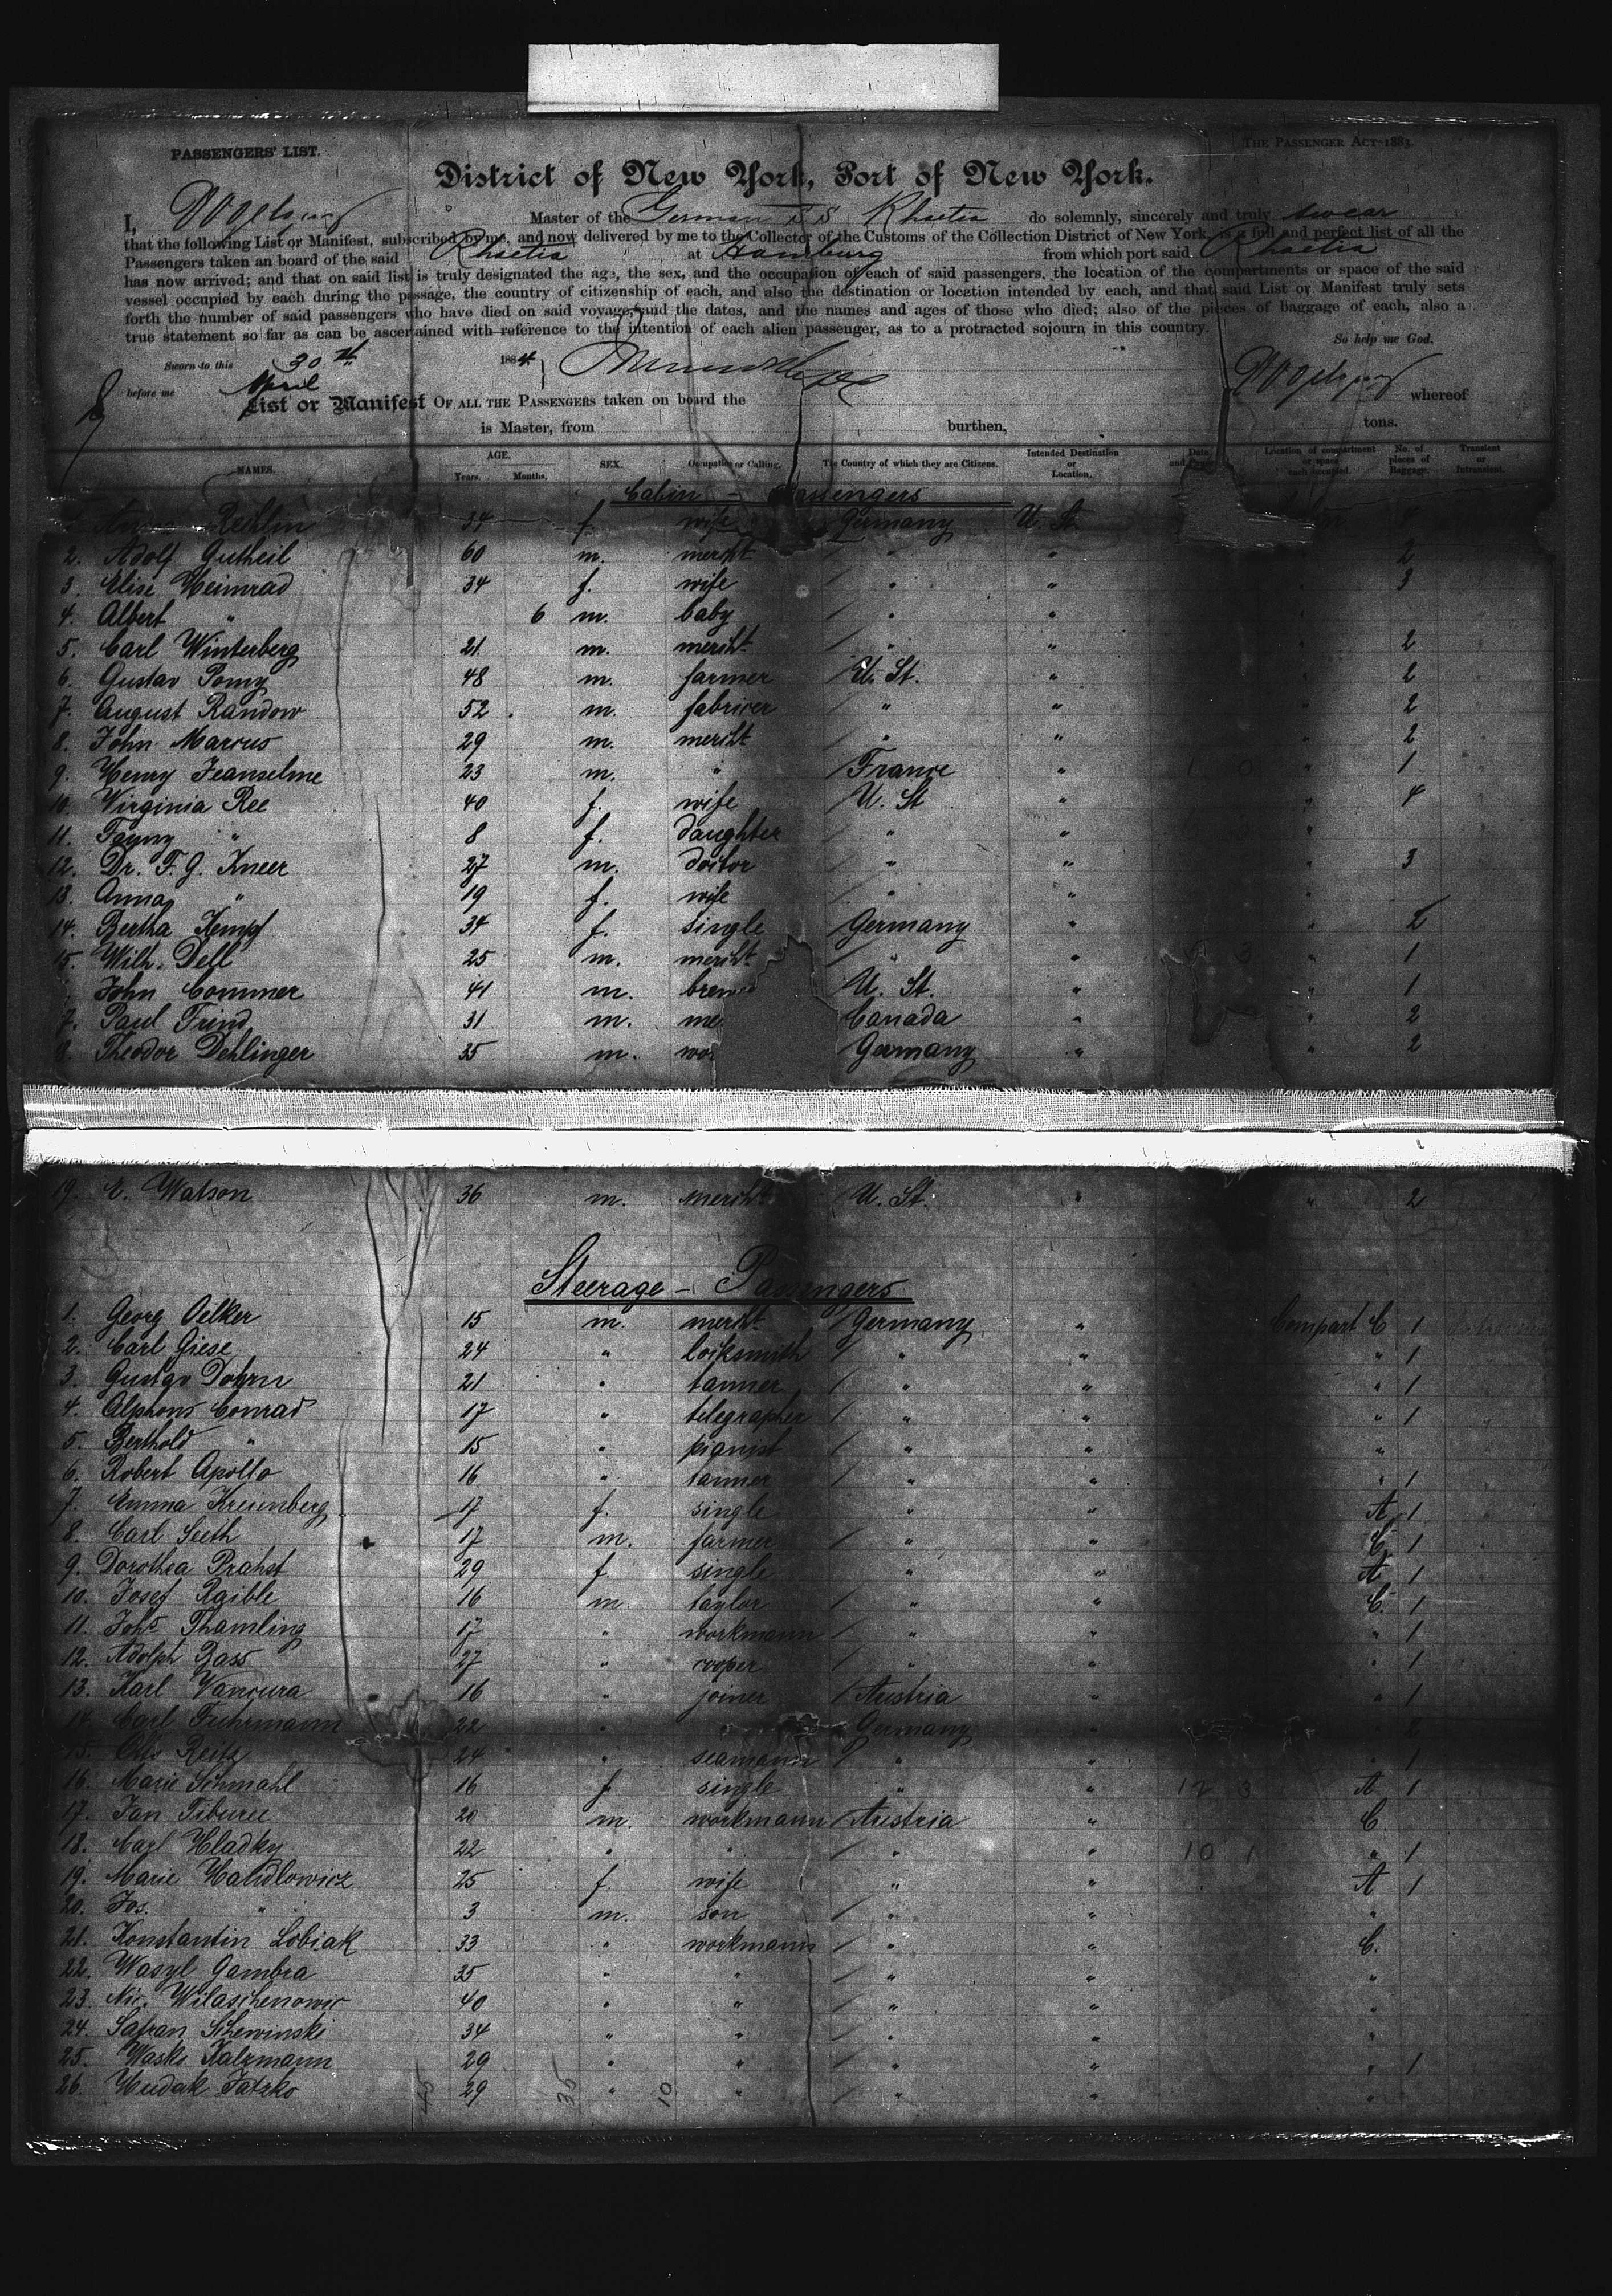 PASSENGERS' LIST.
THE PASSENGER ACT-1883.
District of New York, Port of New York.
I, Master of the German S S Rhaetia do solemnly, sincerely and truly swear
that the following List or Manifest, subscribed by me, and now delivered by me to the Collector of the Customs of the Collection District of New York, is a full and perfect list of all the
Passengers taken an board of the said Rhaetia at Hamburg from which port said Rhaetia
has now arrived; and that on said list is truly designated the age, the sex, and the occupation of each of said passengers, the location of the compartments or space of the said
vessel occupied by each during the passage, the country of citizenship of each, and also the destination or location intended by each, and that said List or Manifest truly sets
forth the number of said passengers who have died on said voyage, and the dates, and the names and ages of those who died; also of the pieces of baggage of each, also a
true statement so far as can be ascertained with reference to the intention of each alien passenger, as to a protracted sojourn in this country.
So help me God.
Sworn to this 30th 1884
before me April
List or Manifest OF ALL THE PASSENGERS taken on board the whereof
is Master, from burthen, tons.
NAMES. AGE. Years. Months. SEX. Occupation or Calling. The Country of which they are Citizens. Intended Destination or Location. Date and Location of compartment or space each occupied. No. of pieces of Baggage. Transient or Intransient.
Cabin - Passengers
34 f. wife Germany U. St. 4
2. Adolf Gutheil 60 m. mercht " " 2
3. Elise Heimrad 34 f. wife " " 3
4. Albert " 6 m. baby " "
5. Carl Winterberg 21 m. mercht " " 2
6. Gustav Pomy 48 m. farmer U. St. " 2
7. August Randow 52 m. fabricer " " 2
8. John Marcus 29 m. mercht " " 2
9. Henry Jeanselme 23 m. " France " 1
10. Virginia Ree 40 f. wife U. St " 4
11. Fanny " 8 f. daughter " "
12. Dr. F. G. Kneer 27 m. doctor " " 3
13. Anna " 19 f. wife " "
14. Bertha Kempf 34 f. single Germany " 2
15. Wilh. Dell 25 m. mercht " " 1
John Commer 41 m. U. St. " 1
7. Paul Frind 31 m. me Canada " 2
8. Theodor Dehlinger 35 m. wo Germany " 2
19. E. Watson 36 m. mercht U. St. " 2
Steerage - Passengers
1. Georg Oelker 15 m. mercht Germany " Compart C 1
2. Carl Giese 24 " locksmith " " " 1
3. Gustav Dohrn 21 " tanner " " " 1
4. Alphons Conrad 17 " telegrapher " " " 1
5. Berthold " 15 " pianist " " "
6. Robert Apollo 16 " tanner " " " 1
7. Emma Kreienberg 17 f. single " " A 1
8. Carl Seeth 17 m. farmer " " C. 1
9. Dorothea Prahst 29 f. single " " A 1
10. Josef Raible 16 m. taylor " " C. 1
11. Johs Thamling 17 " workmann " " " 1
12. Adolph Bass 27 " cooper " " " 1
13. Karl Vancura 16 " joiner Austria " " 1
14. Carl Fuhrmann 22 " " Germany " " 2
15. Otto Reitz 24 " seamann " " " 1
16. Marie Schmahl 16 f. single " " 12 3 A 1
17. Jan Tiburec 20 m. workmann Austria " C.
18. Carl Hladky 22 " " " " 10 1 " 1
19. Marie Handlowicz 25 f. wife " " A 1
20. Jos. " 3 m. son " " "
21. Konstantin Lobiak 33 " workmann " " C.
22. Wasyl Gambra 35 " " " " "
23. Nic. Wilaschenowic 40 " " " " "
24. Safran Schewinski 34 " " " " "
25. Wasko Kalzmann 29 " " " " " 1
26. Hudak Jatzko 29 " " " " "
45 35 10